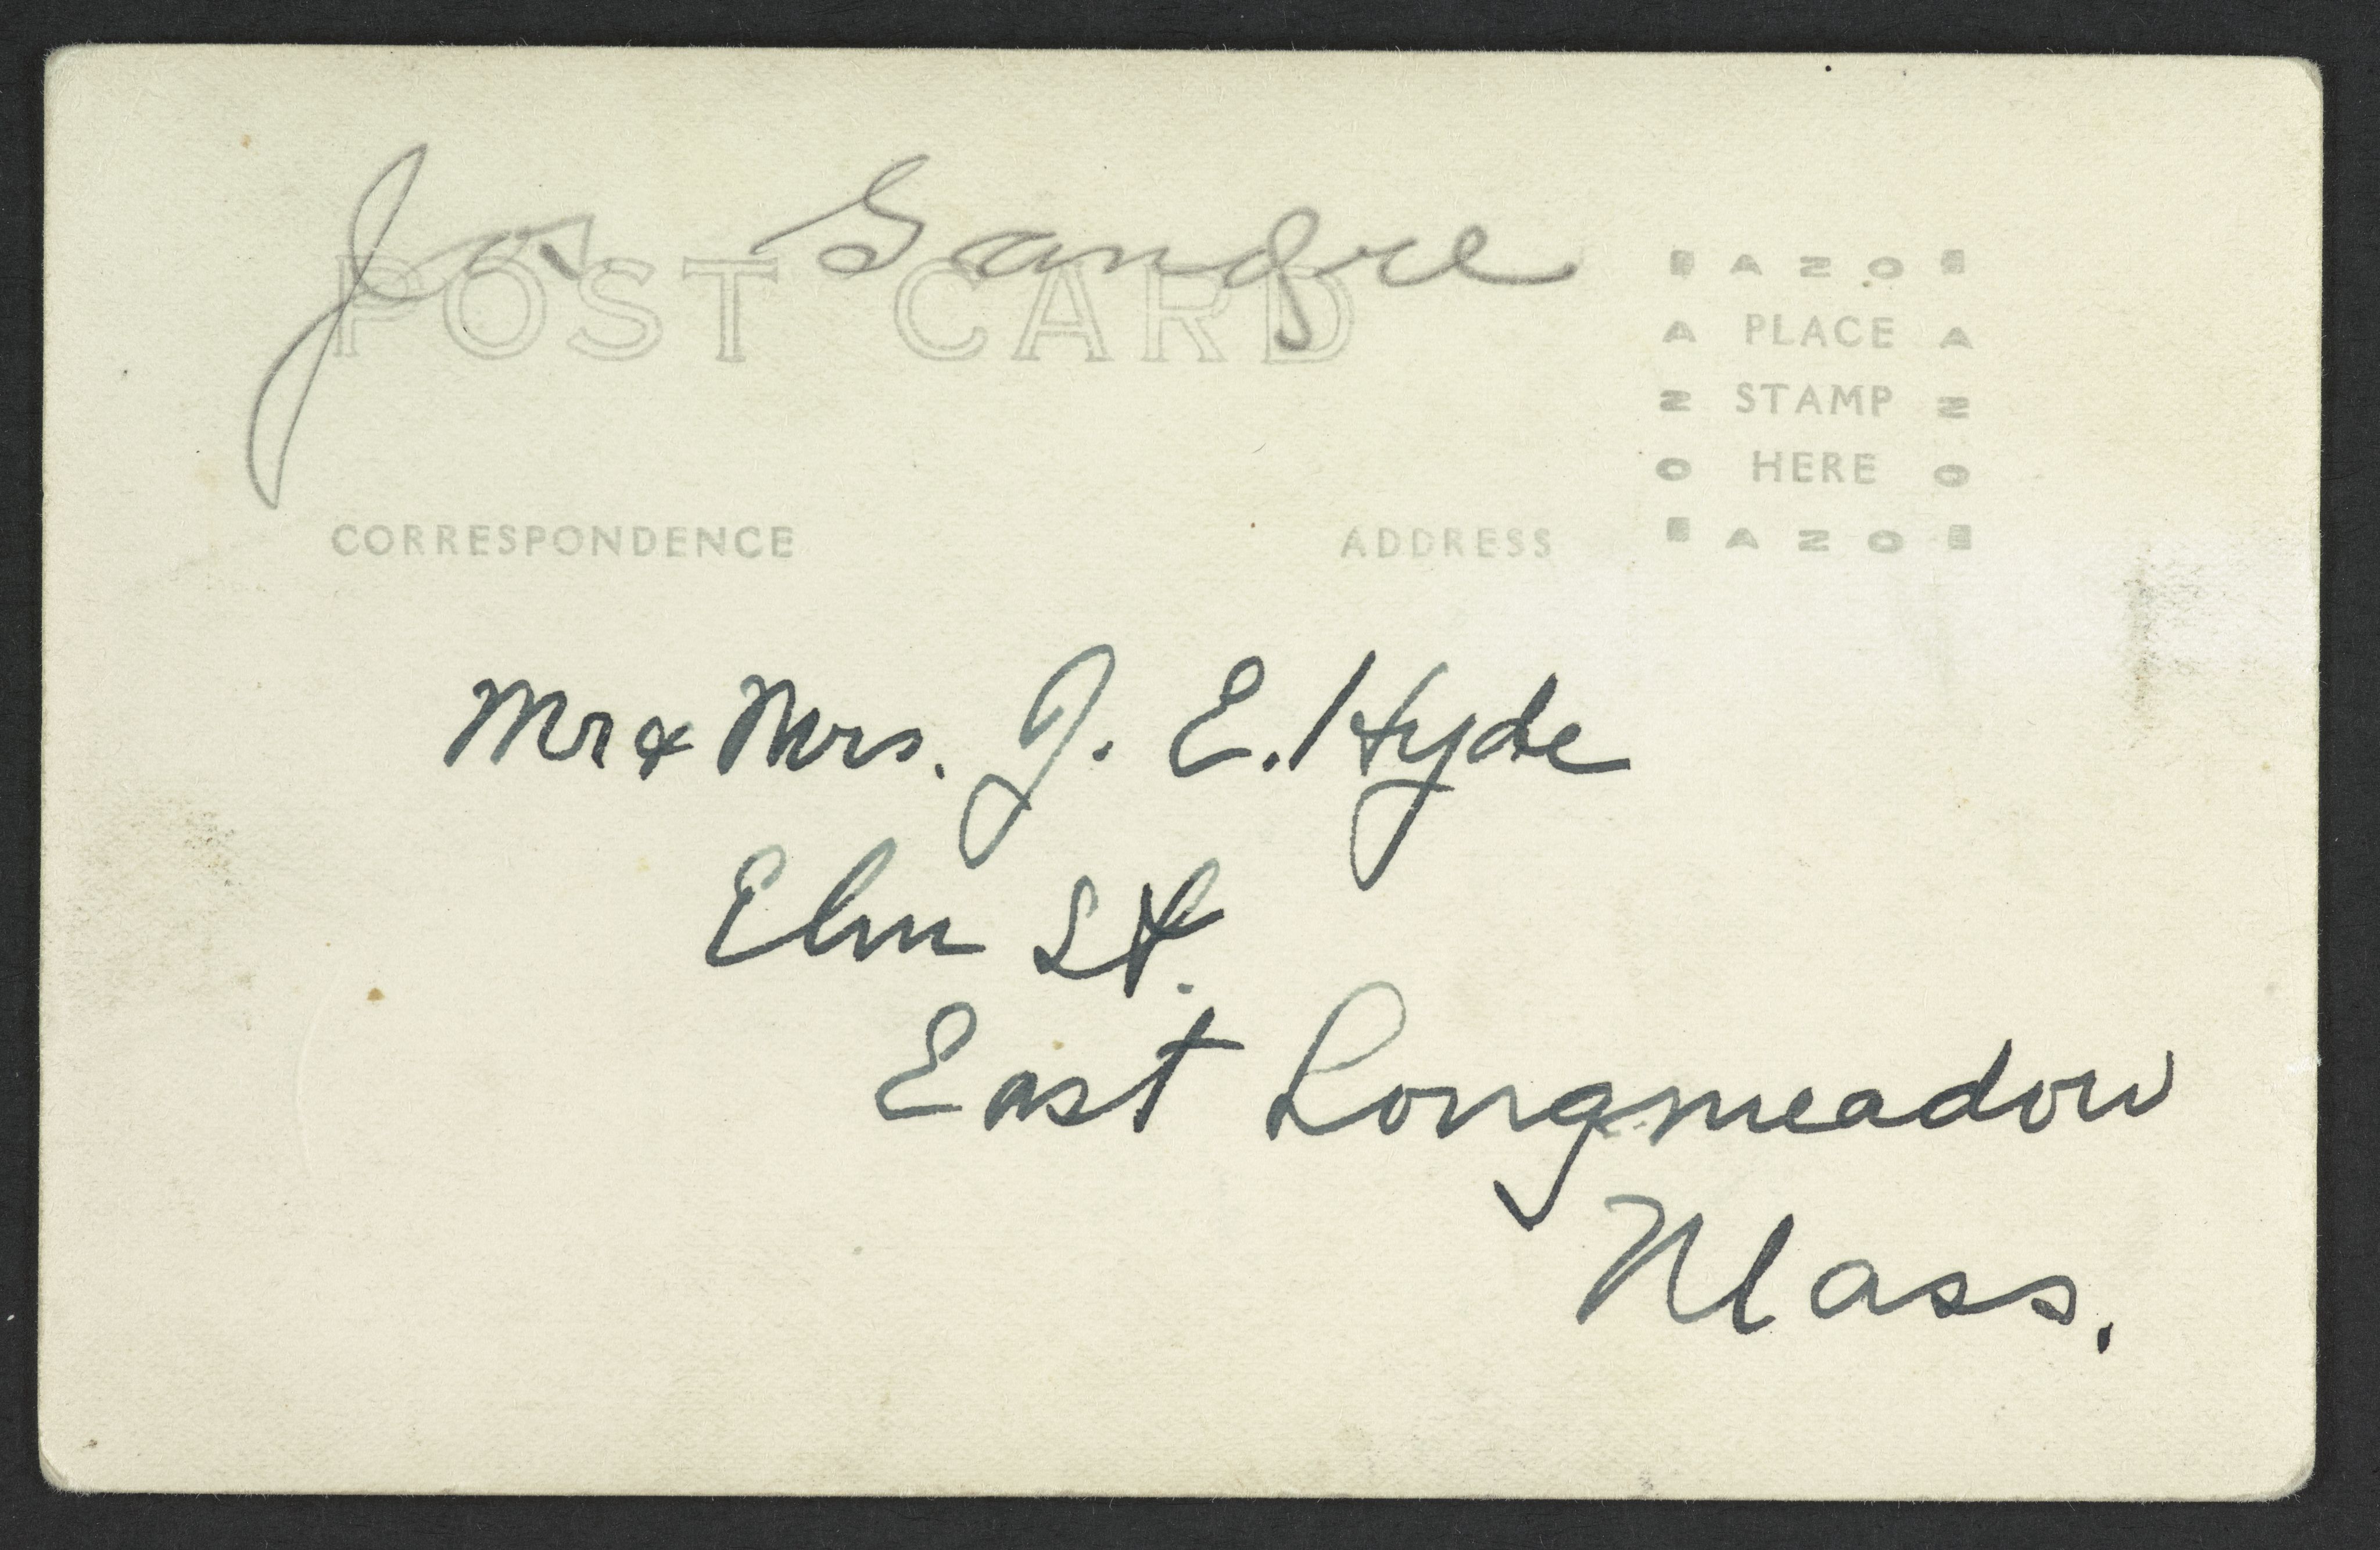 Jos Gangre
POST CARD
AZO
PLACE
STAMP
HERE
AZO
CORRESPONDENCE
ADDRESS
Mr & Mrs. J. E. Hyde
Elm St.
East Longmeadow
Mass.